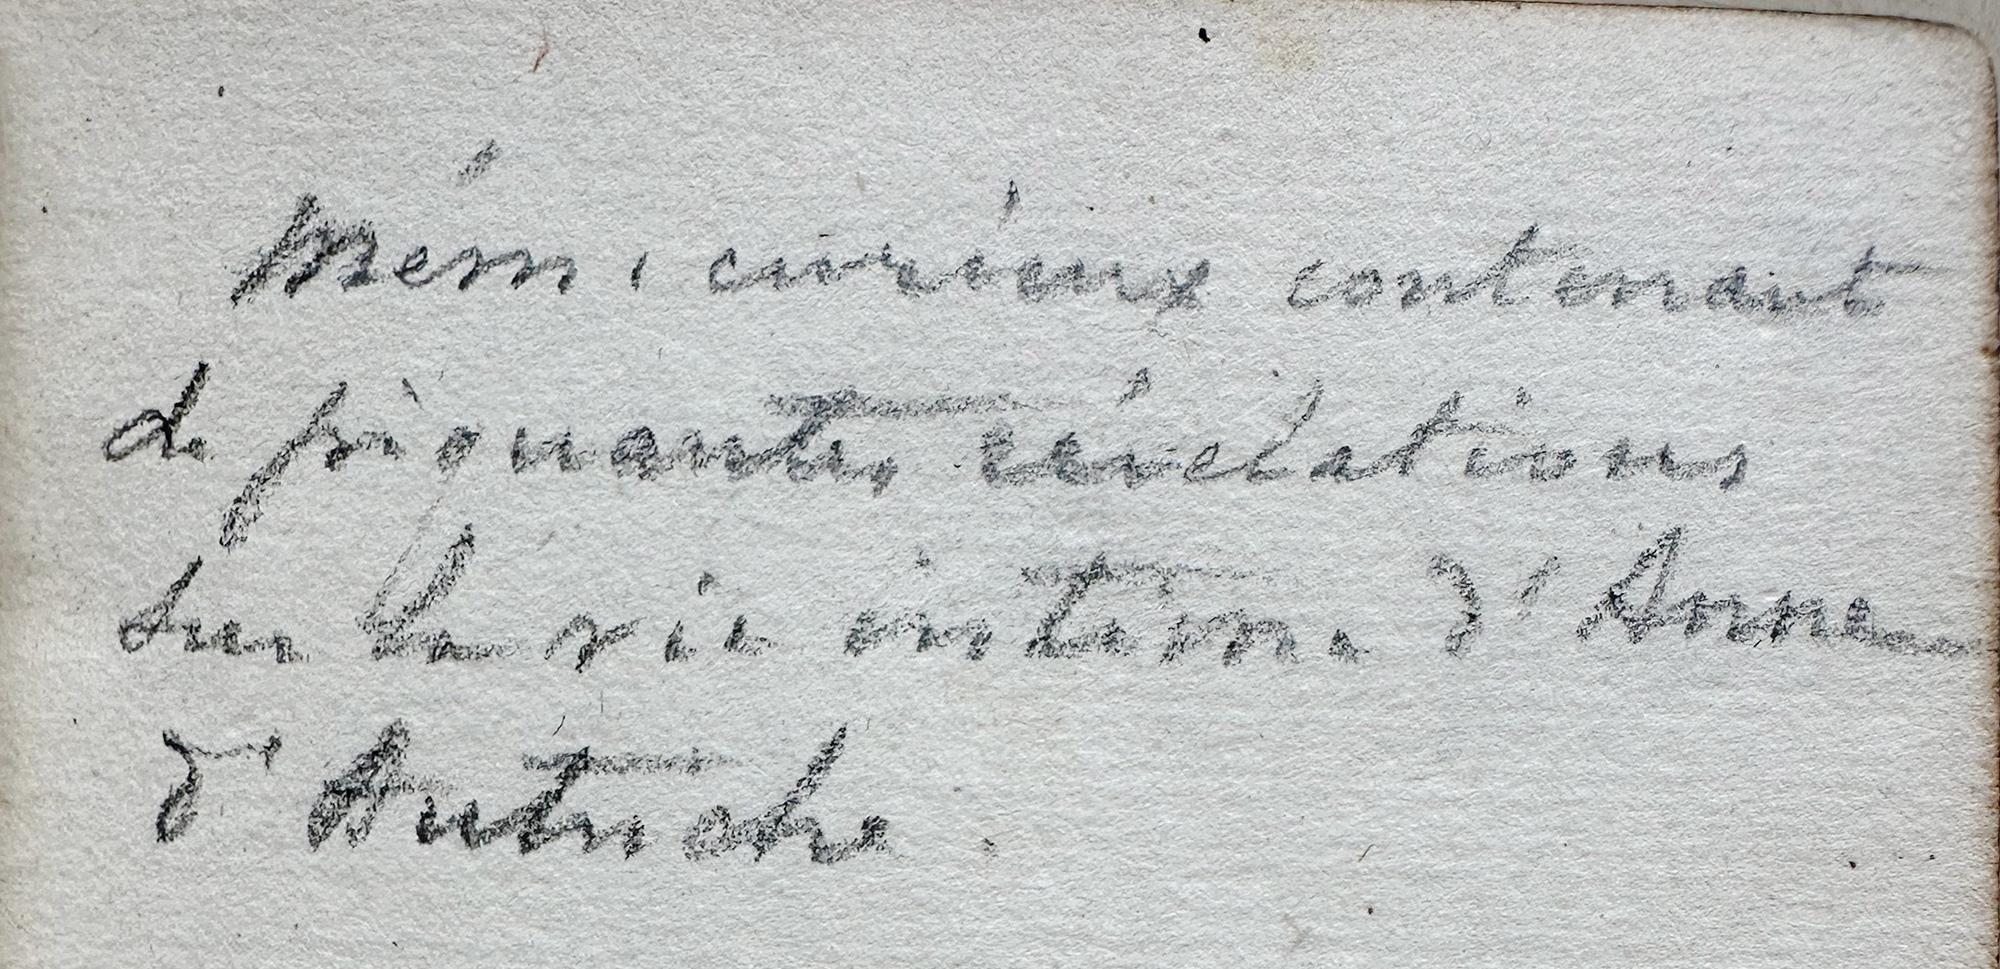 Mém. curieux contenant
de piquantes révélations
sur la vie intime d'Anne
d'Autriche